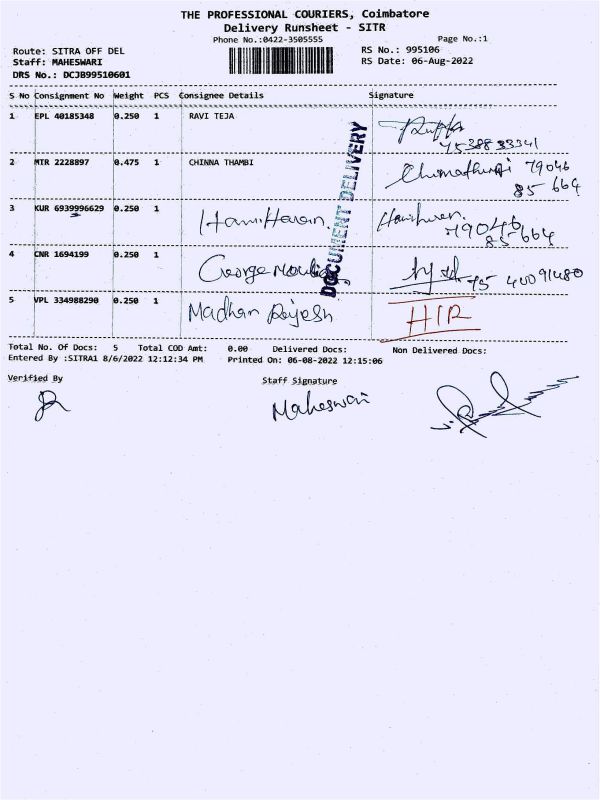 THE PROFESSIONAL COURIERS, Coimbatore
Delivery Runsheet - SITR
Phone No.:0422-3505555
Page No.:1
Route: SITRA OFF DEL
RS No.: 995106
Staff: MAHESWARI
RS Date: 06-Aug-2022
DRS No.: DCJB99510601
S No Consignment No Weight PCS Consignee Details Signature
1 EPL 40185348 0.250 1 RAVI TEJA
7538833341
2 MTR 2228897 0.475 1 CHINNA THAMBI 79046
85 664
3 KUR 6939996629 0.250 1 Hariharan 79046
85 664
4 CNR 1694199 0.250 1 George
75 40091480
5 VPL 334988290 0.250 1 Madhan Rajesh HIR
DOCUMENT DELIVERY
Total No. Of Docs: 5 Total COD Amt: 0.00 Delivered Docs: Non Delivered Docs:
Entered By :SITRA1 8/6/2022 12:12:34 PM Printed On: 06-08-2022 12:15:06
Verified By
Staff Signature
Maheswari